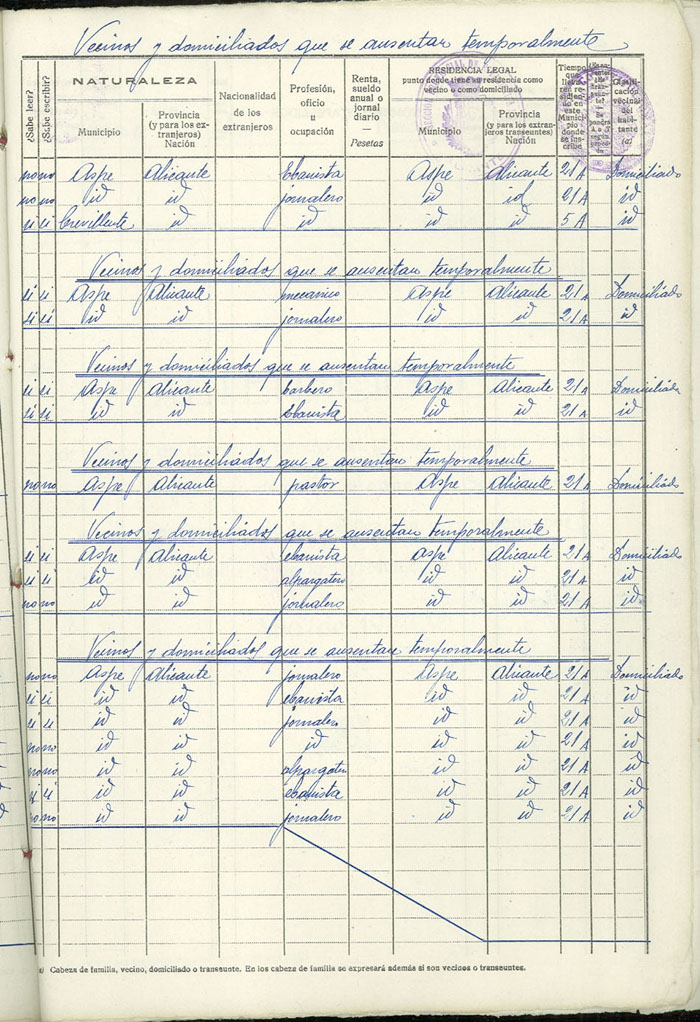 Vecinos y domiciliados que se ausentan temporalmente
¿Sabe leer? ¿Sabe escribir? NATURALEZA Municipio Provincia (y para los extranjeros) Nación Nacionalidad de los extranjeros Profesión, oficio u ocupación Renta, sueldo anual o jornal diario — Pesetas RESIDENCIA LEGAL punto donde tiene la residencia como vecino o como domiciliado Municipio Provincia (y para los extranjeros transeuntes) Nación Tiempo que lleva en residiendo en este Municipio donde se inscribe vecinal del habitante (a)
no no Aspe Alicante Ebanista Aspe Alicante 21 A Domiciliado
no no id id jornalero id id 21 A id
si si Crevillente id id id id 5 A id
Vecinos y domiciliados que se ausentan temporalmente
si si Aspe Alicante mecanico Aspe Alicante 21 A Domiciliado
si si id id jornalero id id 21 A id
Vecinos y domiciliados que se ausentan temporalmente
si si Aspe Alicante barbero Aspe Alicante 21 A Domiciliado
si si id id Ebanista id id 21 A id
Vecinos y domiciliados que se ausentan temporalmente
no no Aspe Alicante pastor Aspe Alicante 21 A Domiciliado
Vecinos y domiciliados que se ausentan temporalmente
si si Aspe Alicante ebanista Aspe Alicante 21 A Domiciliado
si si id id alpargatero id id 21 A id
no no id id jornalero id id 21 A id
Vecinos y domiciliados que se ausentan temporalmente
no no Aspe Alicante jornalero Aspe Alicante 21 A Domiciliado
si si id id ebanista id id 21 A id
si si id id jornalero id id 21 A id
no no id id id id id 21 A id
no no id id alpargatero id id 21 A id
si si id id ebanista id id 21 A id
no no id id jornalero id id 21 A id
a) Cabeza de familia, vecino, domiciliado o transeunte. En los cabeza de familia se expresará además si son vecinos o transeuntes.